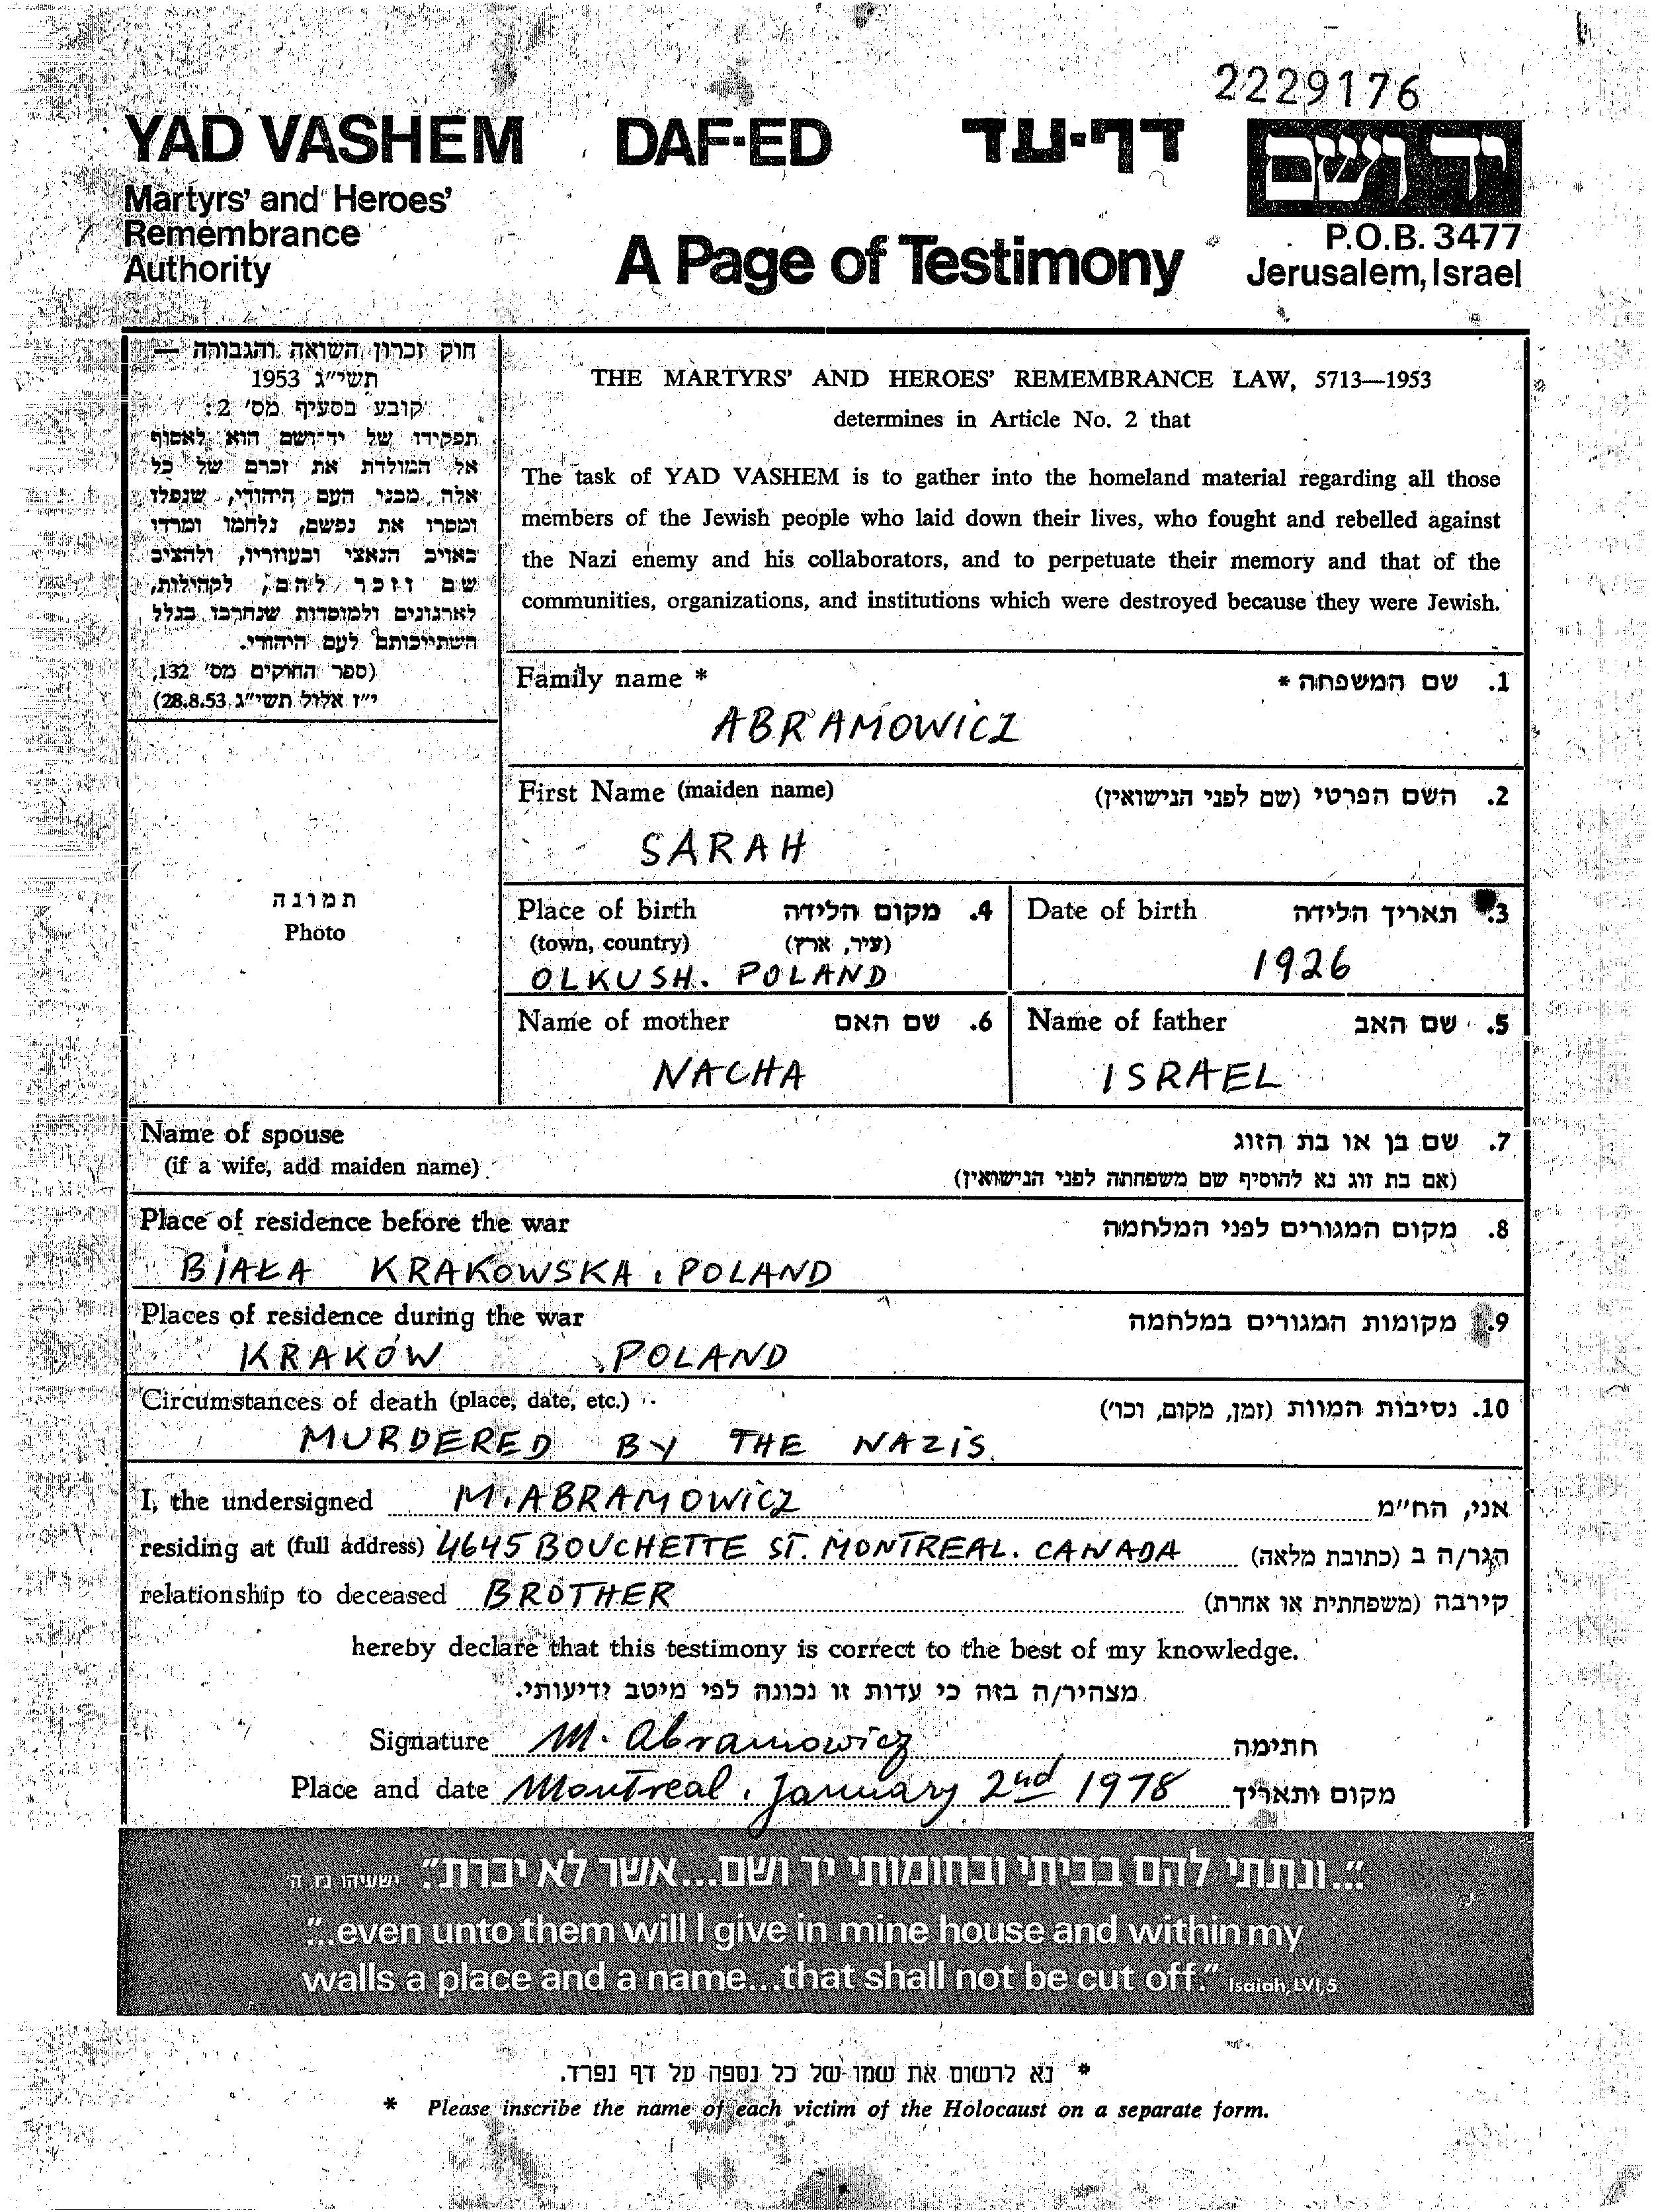 2229176
YAD VASHEM DAF-ED דף-עד יד ושם
Martyrs' and Heroes'
Remembrance
Authority
A Page of Testimony
P.O.B. 3477
Jerusalem, Israel
חוק זכרון השואה והגבורה —
תשי"ג 1953
קובע בסעיף מס' 2:
תפקידו של יד-ושם הוא לאסוף
אל המולדת את זכרם של כל
אלה מבני העם היהודי, שנפלו
ומסרו את נפשם, נלחמו ומרדו
באויב הנאצי ובעוזריו, ולהציב
שם וזכר להם, לקהילות,
לארגונים ולמוסדות שנחרבו בגלל
השתייכותם לעם היהודי.
(ספר החוקים מס' 132,
י"ז אלול תשי"ג 28.8.53)
THE MARTYRS' AND HEROES' REMEMBRANCE LAW, 5713—1953
determines in Article No. 2 that
The task of YAD VASHEM is to gather into the homeland material regarding all those
members of the Jewish people who laid down their lives, who fought and rebelled against
the Nazi enemy and his collaborators, and to perpetuate their memory and that of the
communities, organizations, and institutions which were destroyed because they were Jewish.
תמונה
Photo
Family name * 1. שם המשפחה *
ABRAMOWICZ
First Name (maiden name) 2. השם הפרטי (שם לפני הנישואין)
SARAH
Place of birth 4. מקום הלידה
(town, country) (עיר, ארץ)
OLKUSH. POLAND
Date of birth 3. תאריך הלידה
1926
Name of mother 6. שם האם
NACHA
Name of father 5. שם האב
ISRAEL
Name of spouse 7. שם בן או בת הזוג
(if a wife, add maiden name) (אם בת זוג נא להוסיף שם משפחתה לפני הנישואין)
Place of residence before the war 8. מקום המגורים לפני המלחמה
BIAŁA KRAKOWSKA, POLAND
Places of residence during the war 9. מקומות המגורים במלחמה
KRAKÓW POLAND
Circumstances of death (place, date, etc.) 10. נסיבות המוות (זמן, מקום, וכו')
MURDERED BY THE NAZIS.
I, the undersigned M. ABRAMOWICZ אני, הח"מ
residing at (full address) 4645 BOUCHETTE ST. MONTREAL. CANADA הגר/ה ב (כתובת מלאה)
relationship to deceased BROTHER קירבה (משפחתית או אחרת)
hereby declare that this testimony is correct to the best of my knowledge.
מצהיר/ה בזה כי עדות זו נכונה לפי מיטב ידיעותי.
Signature M. Abramowicz חתימה
Place and date Montreal, January 2nd 1978 מקום ותאריך
"...ונתתי להם בביתי ובחומותי יד ושם...אשר לא יכרת". ישעיהו נו, ה
"...even unto them will I give in mine house and within my
walls a place and a name...that shall not be cut off." Isaiah, LVI,5
* נא לרשום את שמו של כל נספה על דף נפרד.
* Please inscribe the name of each victim of the Holocaust on a separate form.